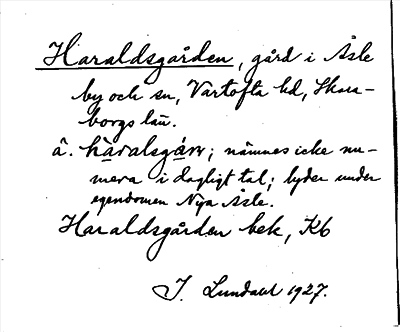 Haraldsgården, gård i Åsle
by och sn, Vartofta hd, Skara-
borgs län.
å. håralsgáṛn; nämnes icke nu-
mera i dagligt tal; lyder under
egendomen Nya Åsle.
Haraldsgården bek, Kb
J. Lundahl 1927.